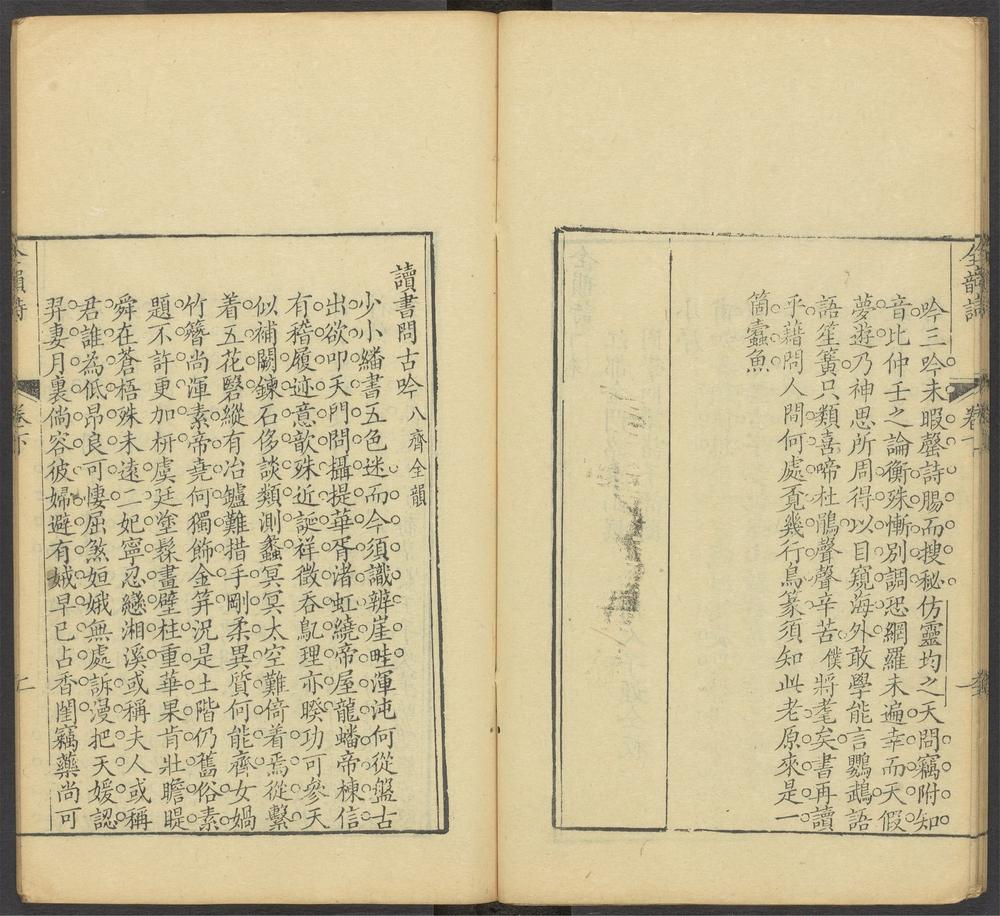 全韻詩
卷一
吟三吟未暇罄詩賜而搜秘仿靈均之天問竊附知
音比仲壬之論衡殊慚別調恐網羅未遍幸而天假
夢遊乃神思所周得以目窺海外敢學能言鸚鵡語
語笙簧只類喜啼杜鵑聲聲辛苦僕將耄矣書再讀
乎藉問人間何處覓幾行鳥篆須知此老原來是一
箇蠹魚
讀書問古吟八齊全韻
少小繙書五色迷而今須識辨崖畦渾沌何從盤古
出欲叩天門問攝提華胥渚虹繞帝屋龍蟠帝棟信
有稽履迹意歆殊近誕祥徵吞鳦理亦暌功可參天
似補闕鍊石侈談類測蠡冥冥太空難倚着焉從繫
着五花磬縱有冶鑪難措手剛柔異質何能齊女媧
竹簪尚渾素帝堯何獨飾金笄況是土階仍舊俗素
題不許更加枅虞廷塗髹畫壁柱重華果肯壯瞻睼
舜在蒼梧殊未遠二妃寧忍戀湘溪或稱夫人或稱
君誰為低昂良可悽屈煞姮娥無處訴漫把天媛認
羿妻月裏倘容彼婦避有娀早已占香閨竊藥尚可
全韻詩
卷下